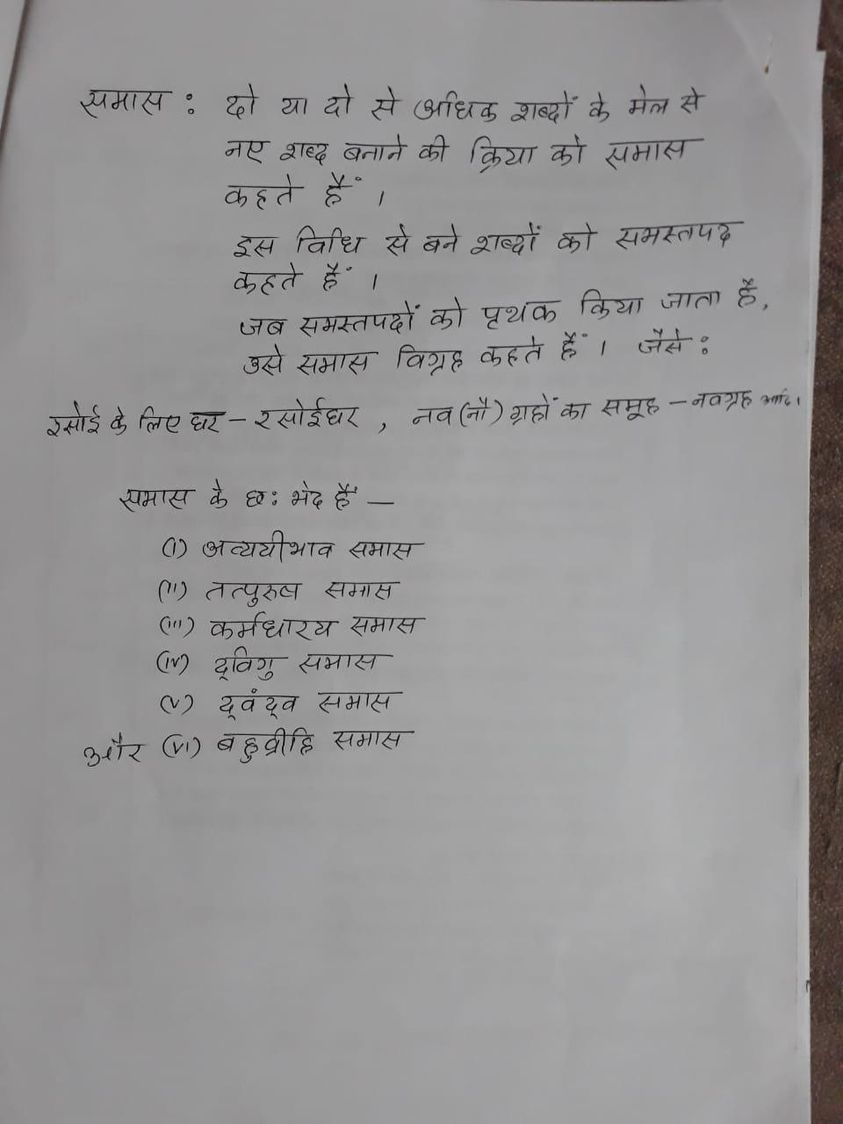 समास : दो या दो से अधिक शब्दों के मेल से
नए शब्द बनाने की क्रिया को समास
कहते हैं ।
इस विधि से बने शब्दों को समस्तपद
कहते हैं ।
जब समस्तपदों को पृथक किया जाता है,
उसे समास विग्रह कहते हैं । जैसे :
रसोई के लिए घर – रसोईघर , नव (नौ) ग्रहों का समूह – नवग्रह आदि ।
समास के छः भेद हैं –
(i) अव्ययीभाव समास
(ii) तत्पुरुष समास
(iii) कर्मधारय समास
(iv) द्विगु समास
(v) द्वंद्व समास
और (vi) बहुव्रीहि समास